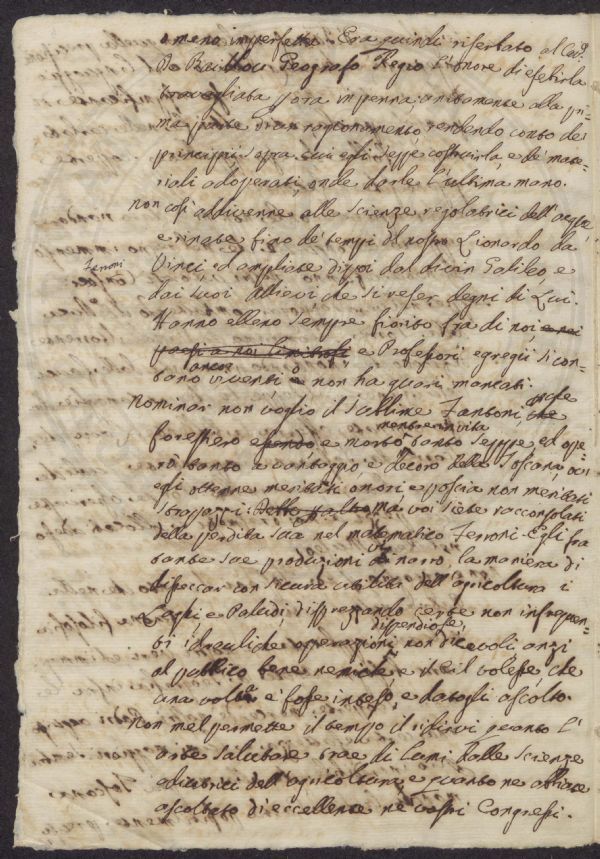 o meno imperfetta. Era quindi riserbato al Cav.
De Baillou Geografo Regio l'onore di esibirla
travagliata ora in penna unitamente alla pri=
ma parte d'un ragionamento, rendendo conto dei
principii sopra cui egli seppe costruirla, e de' mate=
riali adoperati, onde darle l'ultima mano.
non così addivenne alle scienze regolatrici dell'acque
e rinate fino de' tempi del nostro Lionardo da
Ferroni
Vinci ed ampliate dipoi dal divin Galileo, e
dai suoi Allievi che si refer degni di Lui.
Hanno elleno sempre fiorito fra di noi
e Professori egregii si con=
ancor
tano viventi o non ha guari mancati.
Nominar non voglio il sublime Fantoni, che
mentre in vita
forestiero e morto tanto seppe, ed ope=
rò tanto a vantaggio, e decoro della Toscana, ove
egli ottenne meritati onori, e poscia non meritati
strapazzi: ma voi siete racconsolati
della perdita sua nel matematico Ferroni. Egli fra
tante sue produzioni vi narrò, la maniera di
diseccar con sicura utilità dell'agricoltura i
Laghi e Paludi, disprezzando certe non infrequen=
dispendiose,
ti idrauliche operazioni non dicevoli anzi
al pubblico bene nemiche, e il ciel volesse, che
una volta e fosse inteso, e datogli ascolto.
non mel permette il tempo il ridirvi quanto l'
arte salutare trae di lumi dalle scienze
adiutrici dell'agricoltura, e quanto ne abbiate
ascoltato di eccellente ne' vostri Congressi.